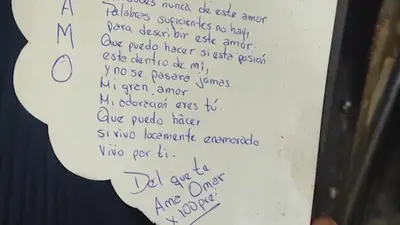 A
M
O
nunca de este amor
Palabras suficientes no hay,
para describir este amor.
Que puedo hacer si esta pasión
este dentro de mi,
y no se pasara jamas
Mi gran amor
Mi adoración eres tú.
Que puedo hacer
si vivo locamente enamorado
vivo por ti.
Del que te
Ama Omar
x 100pre.